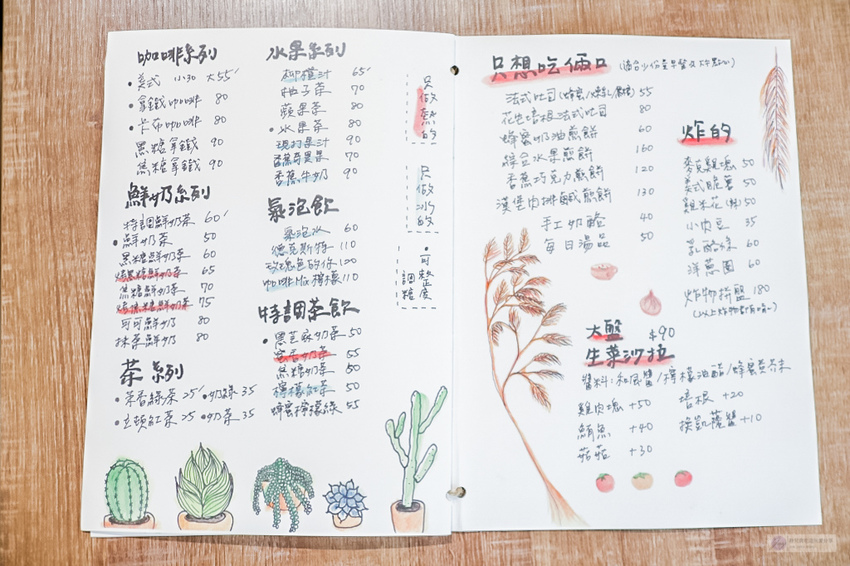 咖啡系列
•美式 小30 大55
•拿鐵咖啡 80
•卡布咖啡 80
黑糖拿鐵 90
焦糖拿鐵 90
鮮奶系列
特調鮮奶茶 60
•鮮奶茶 50
黑糖鮮奶茶 60
65
焦糖鮮奶茶 70
75
可可鮮奶 80
抹茶鮮奶 80
茶系列
•茉香綠茶 25 •奶綠 35
•古頭紅茶 25 •奶茶 35
水果系列
柳橙汁 65
柚子茶 70
蘋果茶 80
•水果茶 80
現打果汁 90
香蕉奇異果 70
香蕉牛奶 90
氣泡飲
氣泡水 60
德克斯特 110
玫瑰色的你 120
咖啡Mix檸檬 110
特調茶飲
•黑芝麻奶茶 50
奶茶 55
黑糖奶茶 50
檸檬紅茶 50
蜂蜜檸檬綠 55
只做熱的
只做冰的
•可整度
調糖
只想吃倆口 (適合少份量早餐及炸點心)
法式吐司 55
花生培根法式吐司 80
蜂蜜奶油煎餅 60
綜合水果煎餅 160
香蕉巧克力煎餅 120
漢堡肉排鹹煎餅 130
手工奶酪 40
每日湯品 50
炸的
麥克雞塊 50
美式脆薯 50
雞米花 50
小肉豆 35
乳酪條 60
洋蔥圈 60
炸物拼盤 180
大盤 $90
生菜沙拉
醬料:和風醬/檸檬油醋/蜂蜜芥末
雞肉塊 +50 培根 +20
鮪魚 +40 凱薩醬 +10
菇菇 +30